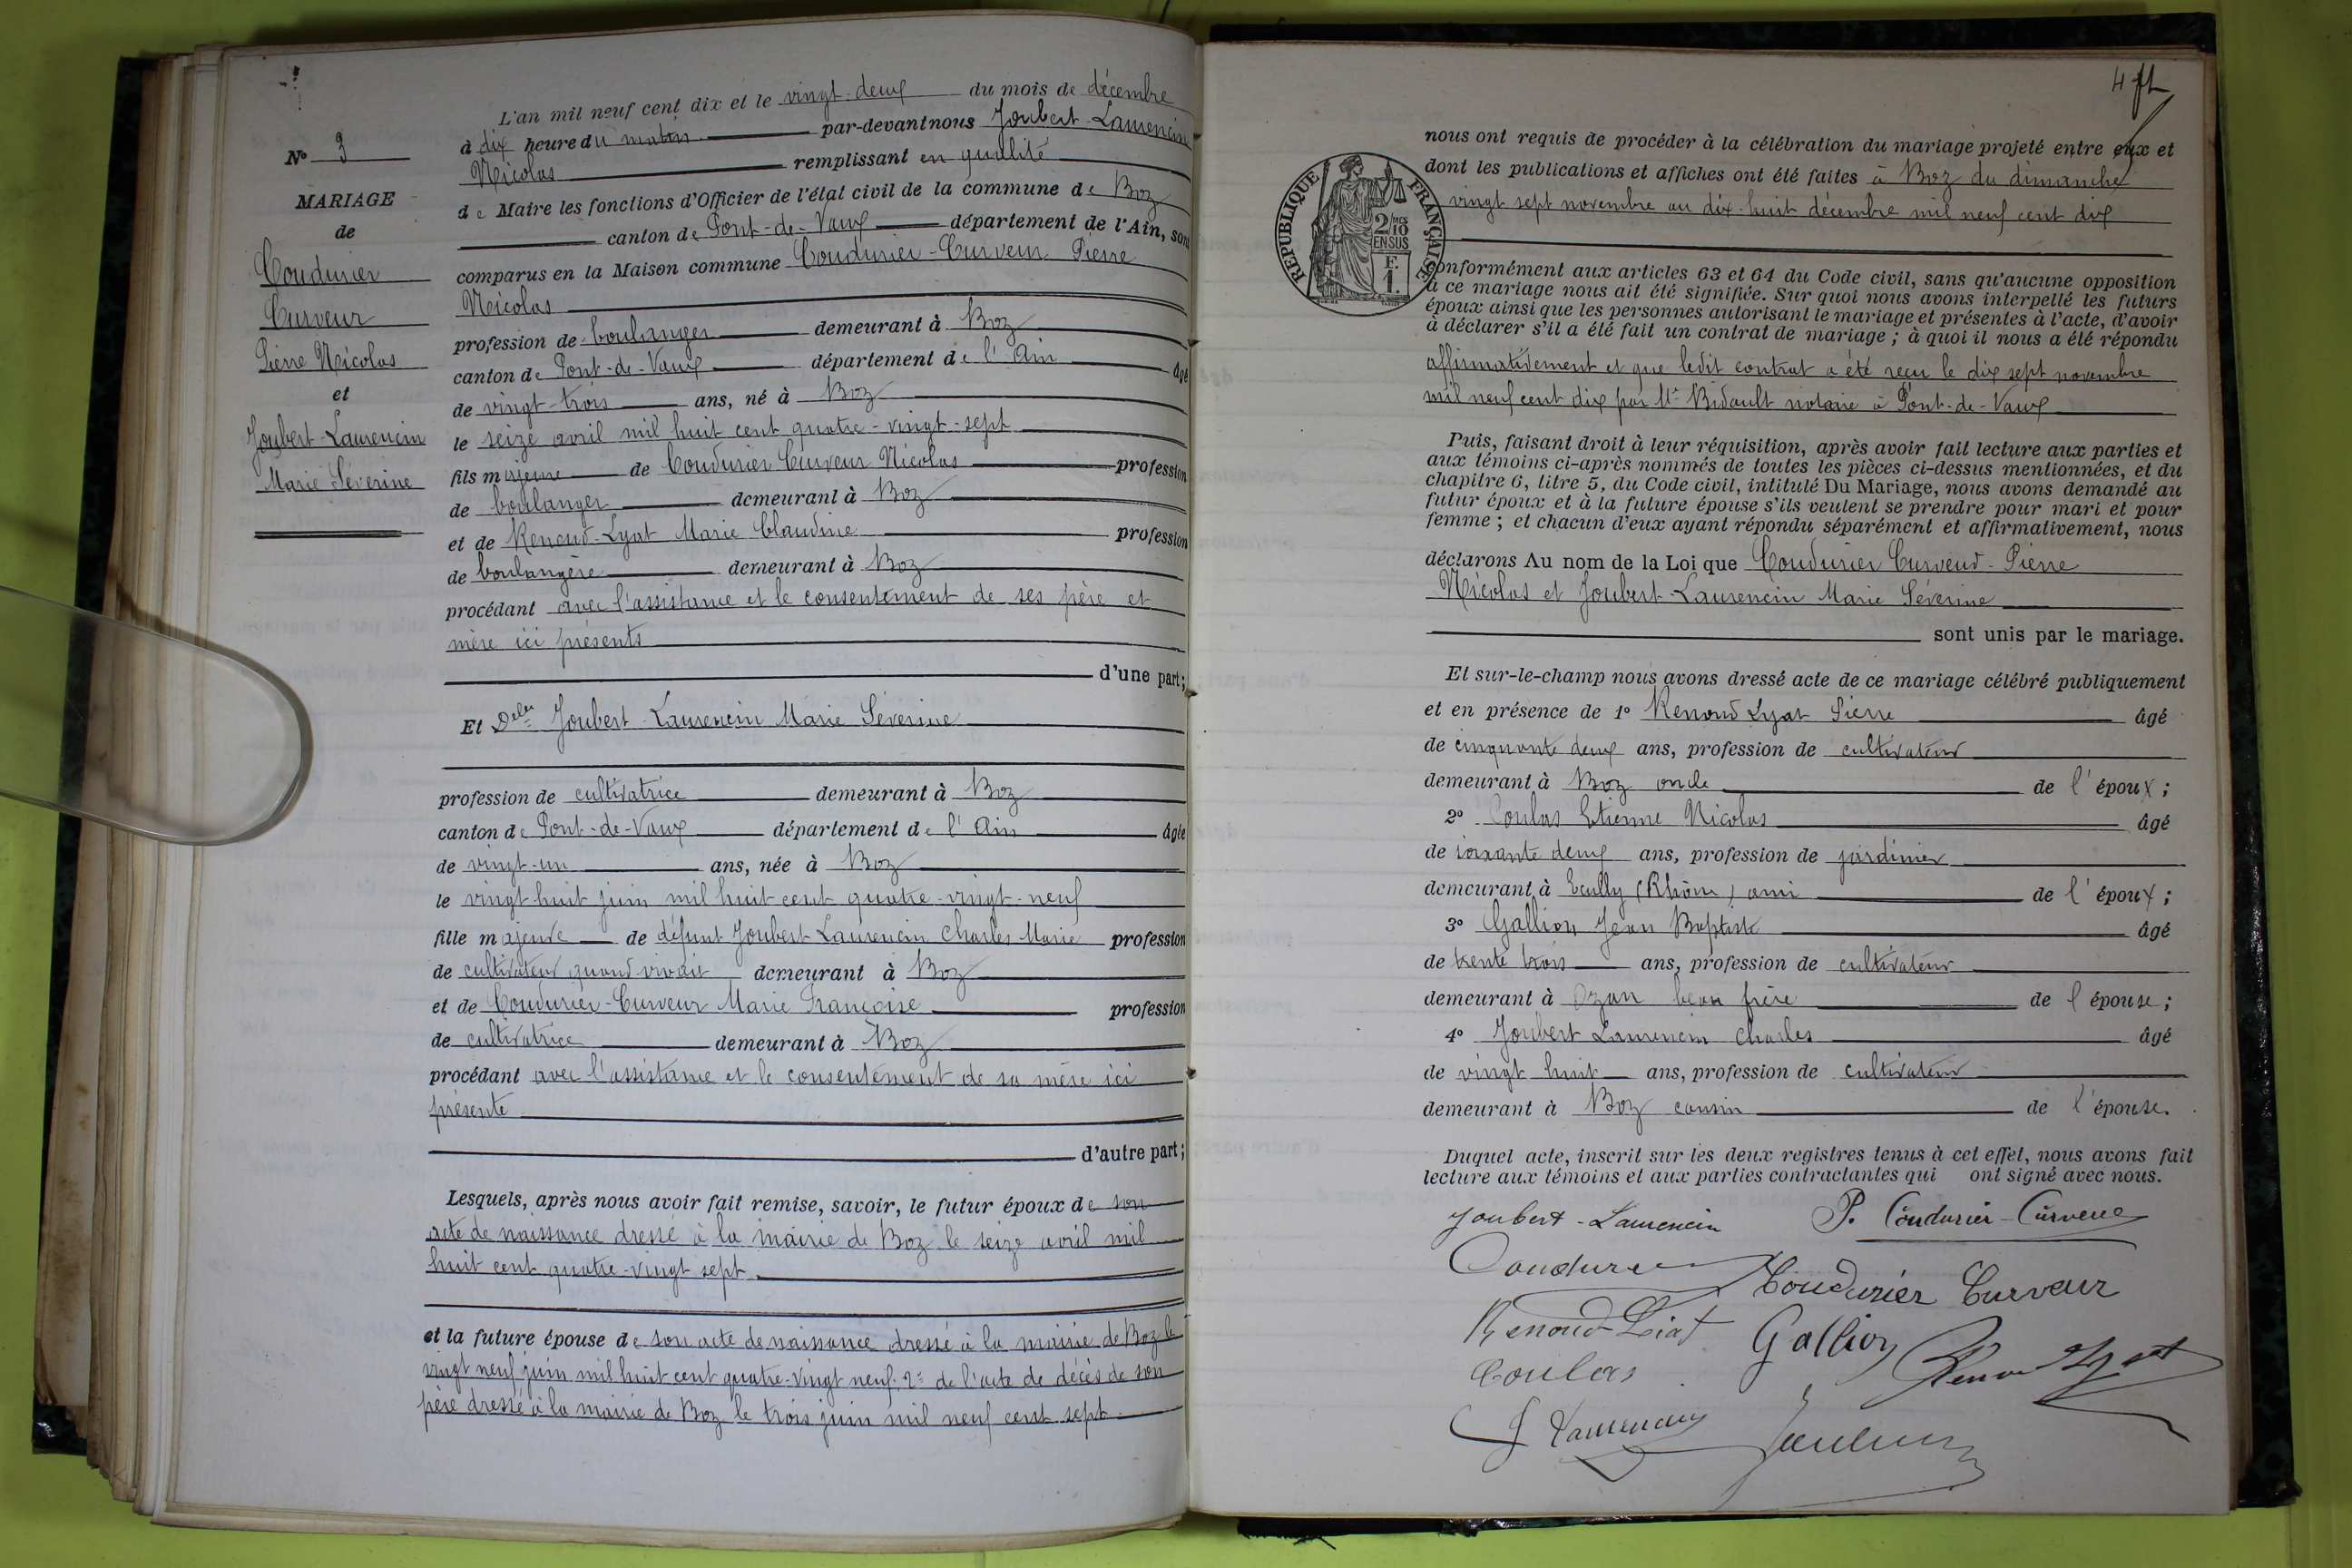 L'an mil neuf cent dix et le vingt-deux du mois de décembre
à dix heure du matin par-devant nous Joubert-Laurencin
Nicolas remplissant en qualité
de Maire les fonctions d'Officier de l'état civil de la commune de Boz
canton de Pont-de-Vaux département de l'Ain, sont
comparus en la Maison commune Coudurier-Curveur Pierre
Nicolas
profession de boulanger demeurant à Boz
canton de Pont-de-Vaux département de l'Ain âgé
de vingt-trois ans, né à Boz
le seize avril mil huit cent quatre-vingt-sept
fils majeur de Coudurier Curveur Nicolas profession
de boulanger demeurant à Boz
et de Renoud-Lyat Marie Claudine profession
de boulangère demeurant à Boz
procédant avec l'assistance et le consentement de ses père et
mère ici présents
d'une part;
Et Delle Joubert-Laurencin Marie Séverine
profession de cultivatrice demeurant à Boz
canton de Pont-de-Vaux département de l'Ain âgée
de vingt-un ans, née à Boz
le vingt-huit juin mil huit cent quatre-vingt-neuf
fille majeure de défunt Joubert-Laurencin Charles Marie profession
de cultivateur quand vivait demeurant à Boz
et de Coudurier-Curveur Marie Françoise profession
de cultivatrice demeurant à Boz
procédant avec l'assistance et le consentement de sa mère ici
présente
d'autre part;
Lesquels, après nous avoir fait remise, savoir, le futur époux de son
acte de naissance dressé à la mairie de Boz le seize avril mil
huit cent quatre-vingt sept.
et la future épouse de son acte de naissance dressé à la mairie de Boz le
vingt neuf juin mil huit cent quatre-vingt neuf. 2° de l'acte de décès de son
père dressé à la mairie de Boz le trois juin mil neuf cent sept.
N° 3
MARIAGE
de
Coudurier
Curveur
Pierre Nicolas
et
Joubert-Laurencin
Marie Séverine
4
nous ont requis de procéder à la célébration du mariage projeté entre eux et
dont les publications et affiches ont été faites à Boz du dimanche
vingt sept novembre au dix-huit décembre mil neuf cent dix
RÉPUBLIQUE FRANÇAISE
2/10 MES
EN SUS
F.
1.
conformément aux articles 63 et 64 du Code civil, sans qu'aucune opposition
à ce mariage nous ait été signifiée. Sur quoi nous avons interpellé les futurs
époux ainsi que les personnes autorisant le mariage et présentes à l'acte, d'avoir
à déclarer s'il a été fait un contrat de mariage ; à quoi il nous a été répondu
affirmativement et que ledit contrat a été reçu le dix sept novembre
mil neuf cent dix par Me Bidault notaire à Pont-de-Vaux
Puis, faisant droit à leur réquisition, après avoir fait lecture aux parties et
aux témoins ci-après nommés de toutes les pièces ci-dessus mentionnées, et du
chapitre 6, titre 5, du Code civil, intitulé Du Mariage, nous avons demandé au
futur époux et à la future épouse s'ils veulent se prendre pour mari et pour
femme ; et chacun d'eux ayant répondu séparément et affirmativement, nous
déclarons Au nom de la Loi que Coudurier Curveur-Pierre
Nicolas et Joubert-Laurencin Marie Séverine
sont unis par le mariage.
Et sur-le-champ nous avons dressé acte de ce mariage célébré publiquement
et en présence de 1° Renoud Lyat Pierre âgé
de cinquante deux ans, profession de cultivateur
demeurant à Boz oncle de l'époux ;
2° Coulas Etienne Nicolas âgé
de soixante deux ans, profession de jardinier
demeurant à Ecully (Rhône) ami de l'époux ;
3° Gallion Jean Baptiste âgé
de trente trois ans, profession de cultivateur
demeurant à Ozan beau frère de l'épouse ;
4° Joubert Laurencin Charles âgé
de vingt huit ans, profession de cultivateur
demeurant à Boz cousin de l'épouse.
Duquel acte, inscrit sur les deux registres tenus à cet effet, nous avons fait
lecture aux témoins et aux parties contractantes qui ont signé avec nous.
Joubert-Laurencin P. Coudurier-Curveur
Coudurier Coudurier Curveur
Renoud-Liat Gallion Renoud Lyat
Coulas
J Laurencin